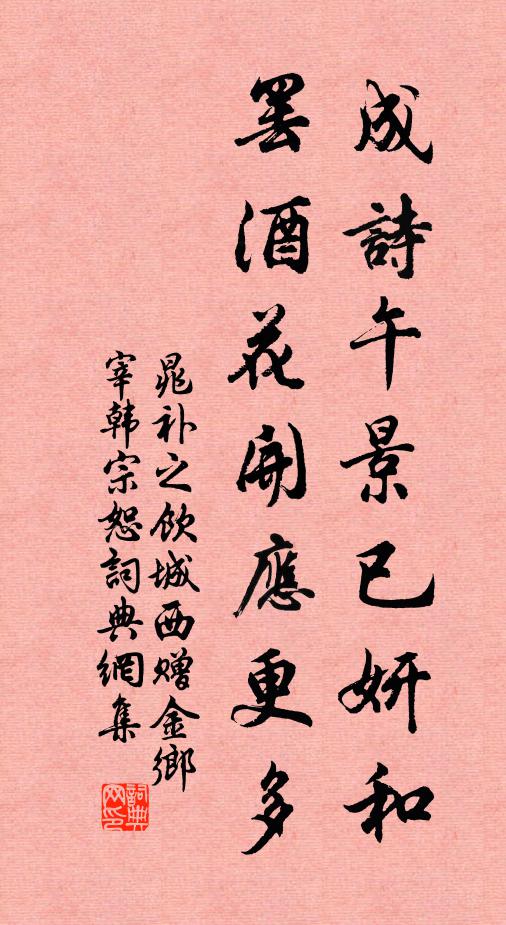 成詩午景已妍和
罷酒花開應更多
晁补之飲城西赠金鄉
宰韩宗恕詞典網集
詞典
网印